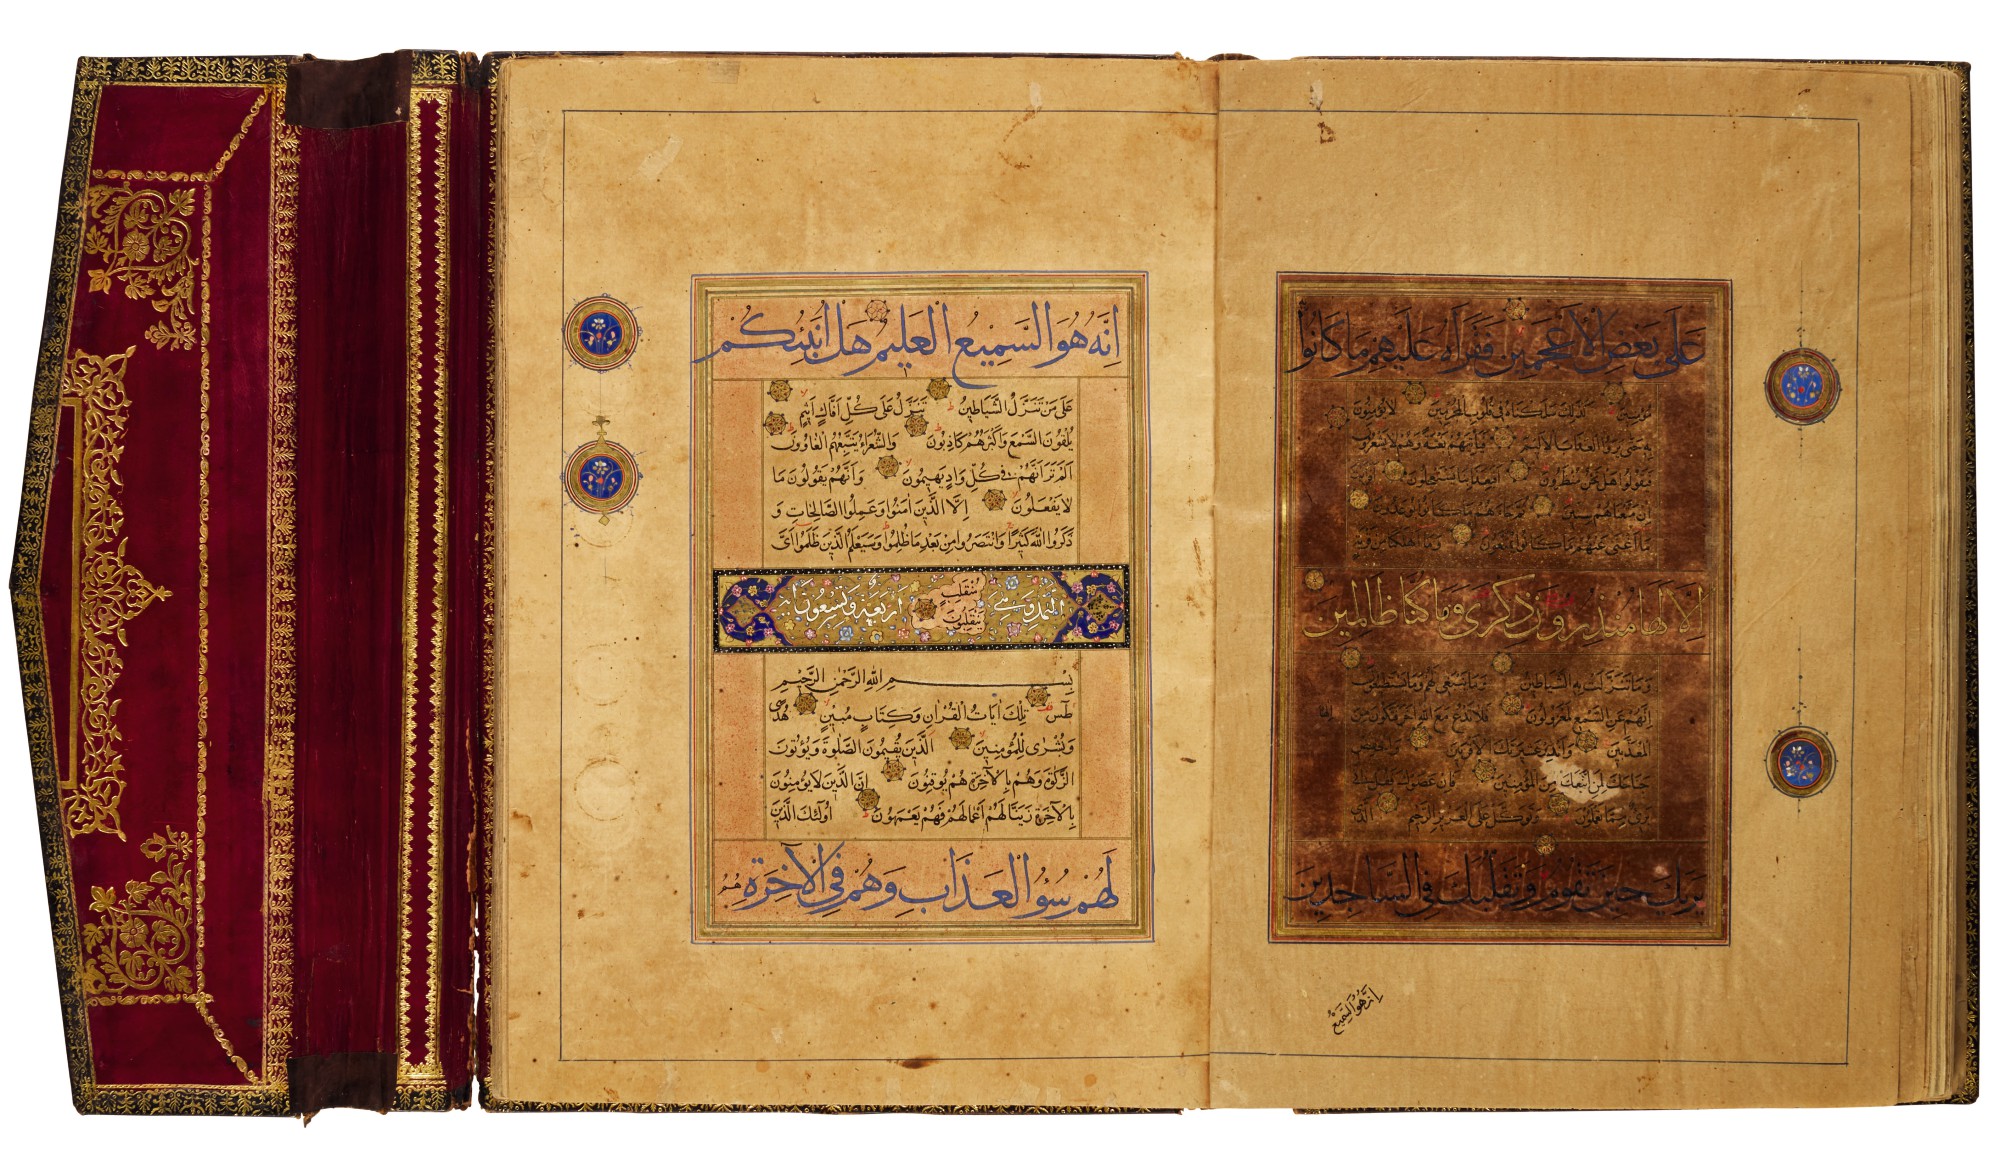 عَلَى بَعْضِ الْأَعْجَمِينَ فَقَرَأَهُ عَلَيْهِمْ مَا كَانُوا
مُؤْمِنِينَ كَذَلِكَ سَلَكْنَاهُ فِي قُلُوبِ الْمُجْرِمِينَ لَا يُؤْمِنُونَ
بِهِ حَتَّى يَرَوُا الْعَذَابَ الْأَلِيمَ فَيَأْتِيَهُمْ بَغْتَةً وَهُمْ لَا يَشْعُرُونَ
فَيَقُولُوا هَلْ نَحْنُ مُنْظَرُونَ أَفَبِعَذَابِنَا يَسْتَعْجِلُونَ أَفَرَأَيْتَ
إِنْ مَتَّعْنَاهُمْ سِنِينَ ثُمَّ جَاءَهُمْ مَا كَانُوا يُوعَدُونَ
مَا أَغْنَى عَنْهُمْ مَا كَانُوا يُمَتَّعُونَ وَمَا أَهْلَكْنَا مِنْ قَرْيَةٍ
إِلَّا لَهَا مُنْذِرُونَ ذِكْرَى وَمَا كُنَّا ظَالِمِينَ
وَمَا تَنَزَّلَتْ بِهِ الشَّيَاطِينُ وَمَا يَنْبَغِي لَهُمْ وَمَا يَسْتَطِيعُونَ
إِنَّهُمْ عَنِ السَّمْعِ لَمَعْزُولُونَ فَلَا تَدْعُ مَعَ اللهِ إِلَهًا آخَرَ فَتَكُونَ مِنَ
الْمُعَذَّبِينَ وَأَنْذِرْ عَشِيرَتَكَ الْأَقْرَبِينَ وَاخْفِضْ
جَنَاحَكَ لِمَنِ اتَّبَعَكَ مِنَ الْمُؤْمِنِينَ فَإِنْ عَصَوْكَ فَقُلْ إِنِّي
بَرِيءٌ مِمَّا تَعْمَلُونَ وَتَوَكَّلْ عَلَى الْعَزِيزِ الرَّحِيمِ الَّذِي
يَرَاكَ حِينَ تَقُومُ وَتَقَلُّبَكَ فِي السَّاجِدِينَ
إِنَّهُ هُوَ السَّمِيعُ
إِنَّهُ هُوَ السَّمِيعُ الْعَلِيمُ هَلْ أُنَبِّئُكُمْ
عَلَى مَنْ تَنَزَّلُ الشَّيَاطِينُ تَنَزَّلُ عَلَى كُلِّ أَفَّاكٍ أَثِيمٍ
يُلْقُونَ السَّمْعَ وَأَكْثَرُهُمْ كَاذِبُونَ وَالشُّعَرَاءُ يَتَّبِعُهُمُ الْغَاوُونَ
أَلَمْ تَرَ أَنَّهُمْ فِي كُلِّ وَادٍ يَهِيمُونَ وَأَنَّهُمْ يَقُولُونَ مَا
لَا يَفْعَلُونَ إِلَّا الَّذِينَ آمَنُوا وَعَمِلُوا الصَّالِحَاتِ وَ
ذَكَرُوا اللهَ كَثِيرًا وَانْتَصَرُوا مِنْ بَعْدِ مَا ظُلِمُوا وَسَيَعْلَمُ الَّذِينَ ظَلَمُوا أَيَّ
مُنْقَلَبٍ
يَنْقَلِبُونَ
أربعة وتسعون آية
بِسْمِ اللهِ الرَّحْمٰنِ الرَّحِيمِ
طس تِلْكَ آيَاتُ الْقُرْآنِ وَكِتَابٍ مُبِينٍ هُدًى
وَبُشْرَى لِلْمُؤْمِنِينَ الَّذِينَ يُقِيمُونَ الصَّلٰوةَ وَيُؤْتُونَ
الزَّكٰوةَ وَهُمْ بِالْآخِرَةِ هُمْ يُوقِنُونَ إِنَّ الَّذِينَ لَا يُؤْمِنُونَ
بِالْآخِرَةِ زَيَّنَّا لَهُمْ أَعْمَالَهُمْ فَهُمْ يَعْمَهُونَ أُولَئِكَ الَّذِينَ
لَهُمْ سُوءُ الْعَذَابِ وَهُمْ فِي الْآخِرَةِ هُمُ